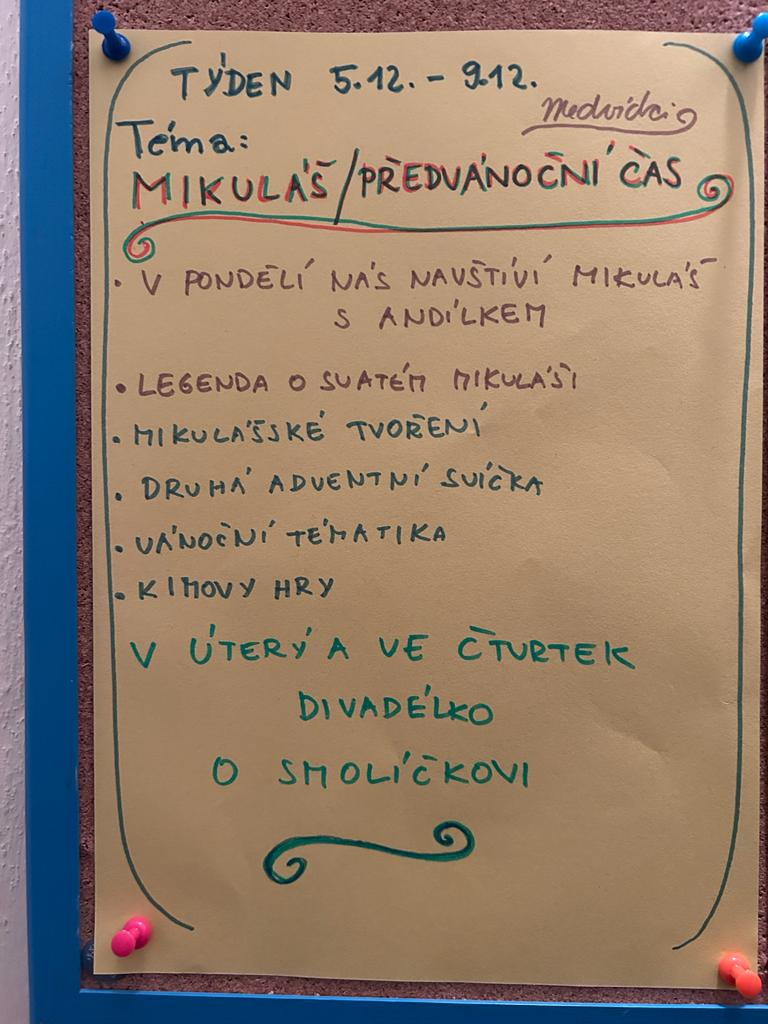 TÝDEN 5.12. - 9.12.
Medvídci
Téma:
MIKULÁŠ/PŘEDVÁNOČNÍ ČAS
• V PONDĚLÍ NÁS NAVŠTÍVÍ MIKULÁŠ
S ANDÍLKEM
• LEGENDA O SVATÉM MIKULÁŠI
• MIKULÁŠSKÉ TVOŘENÍ
• DRUHÁ ADVENTNÍ SVÍČKA
• VÁNOČNÍ TÉMATIKA
• KIMOVY HRY
V ÚTERÝ A VE ČTVRTEK
DIVADÉLKO
O SMOLÍČKOVI